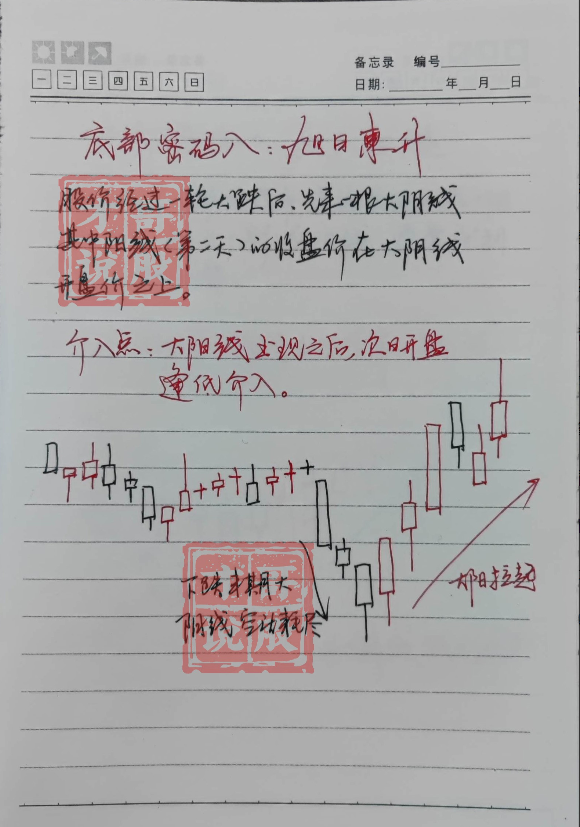 备忘录 编号
一 二 三 四 五 六 日
日期: 年 月 日
底部密码八：旭日東升
股价经过一轮大跌后、先来一根大阴线
其中阳线（第二天）的收盘价在大阴线
开盘价之上。
介入点：大阳线出现之后,次日开盘
逢低介入。
下跌末期大
阴线空动耗尽
太阳拉起
哥
说股
说股